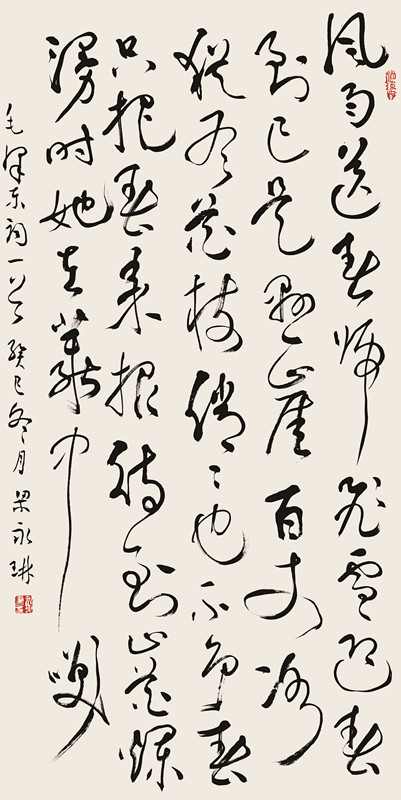 风雨送春归飞雪迎春
到已是悬崖百丈冰
犹有花枝俏〻也不争春
只把春来报待到山花烂
漫时她在丛中笑
毛泽东词一首 癸巳冬月 梁永琳